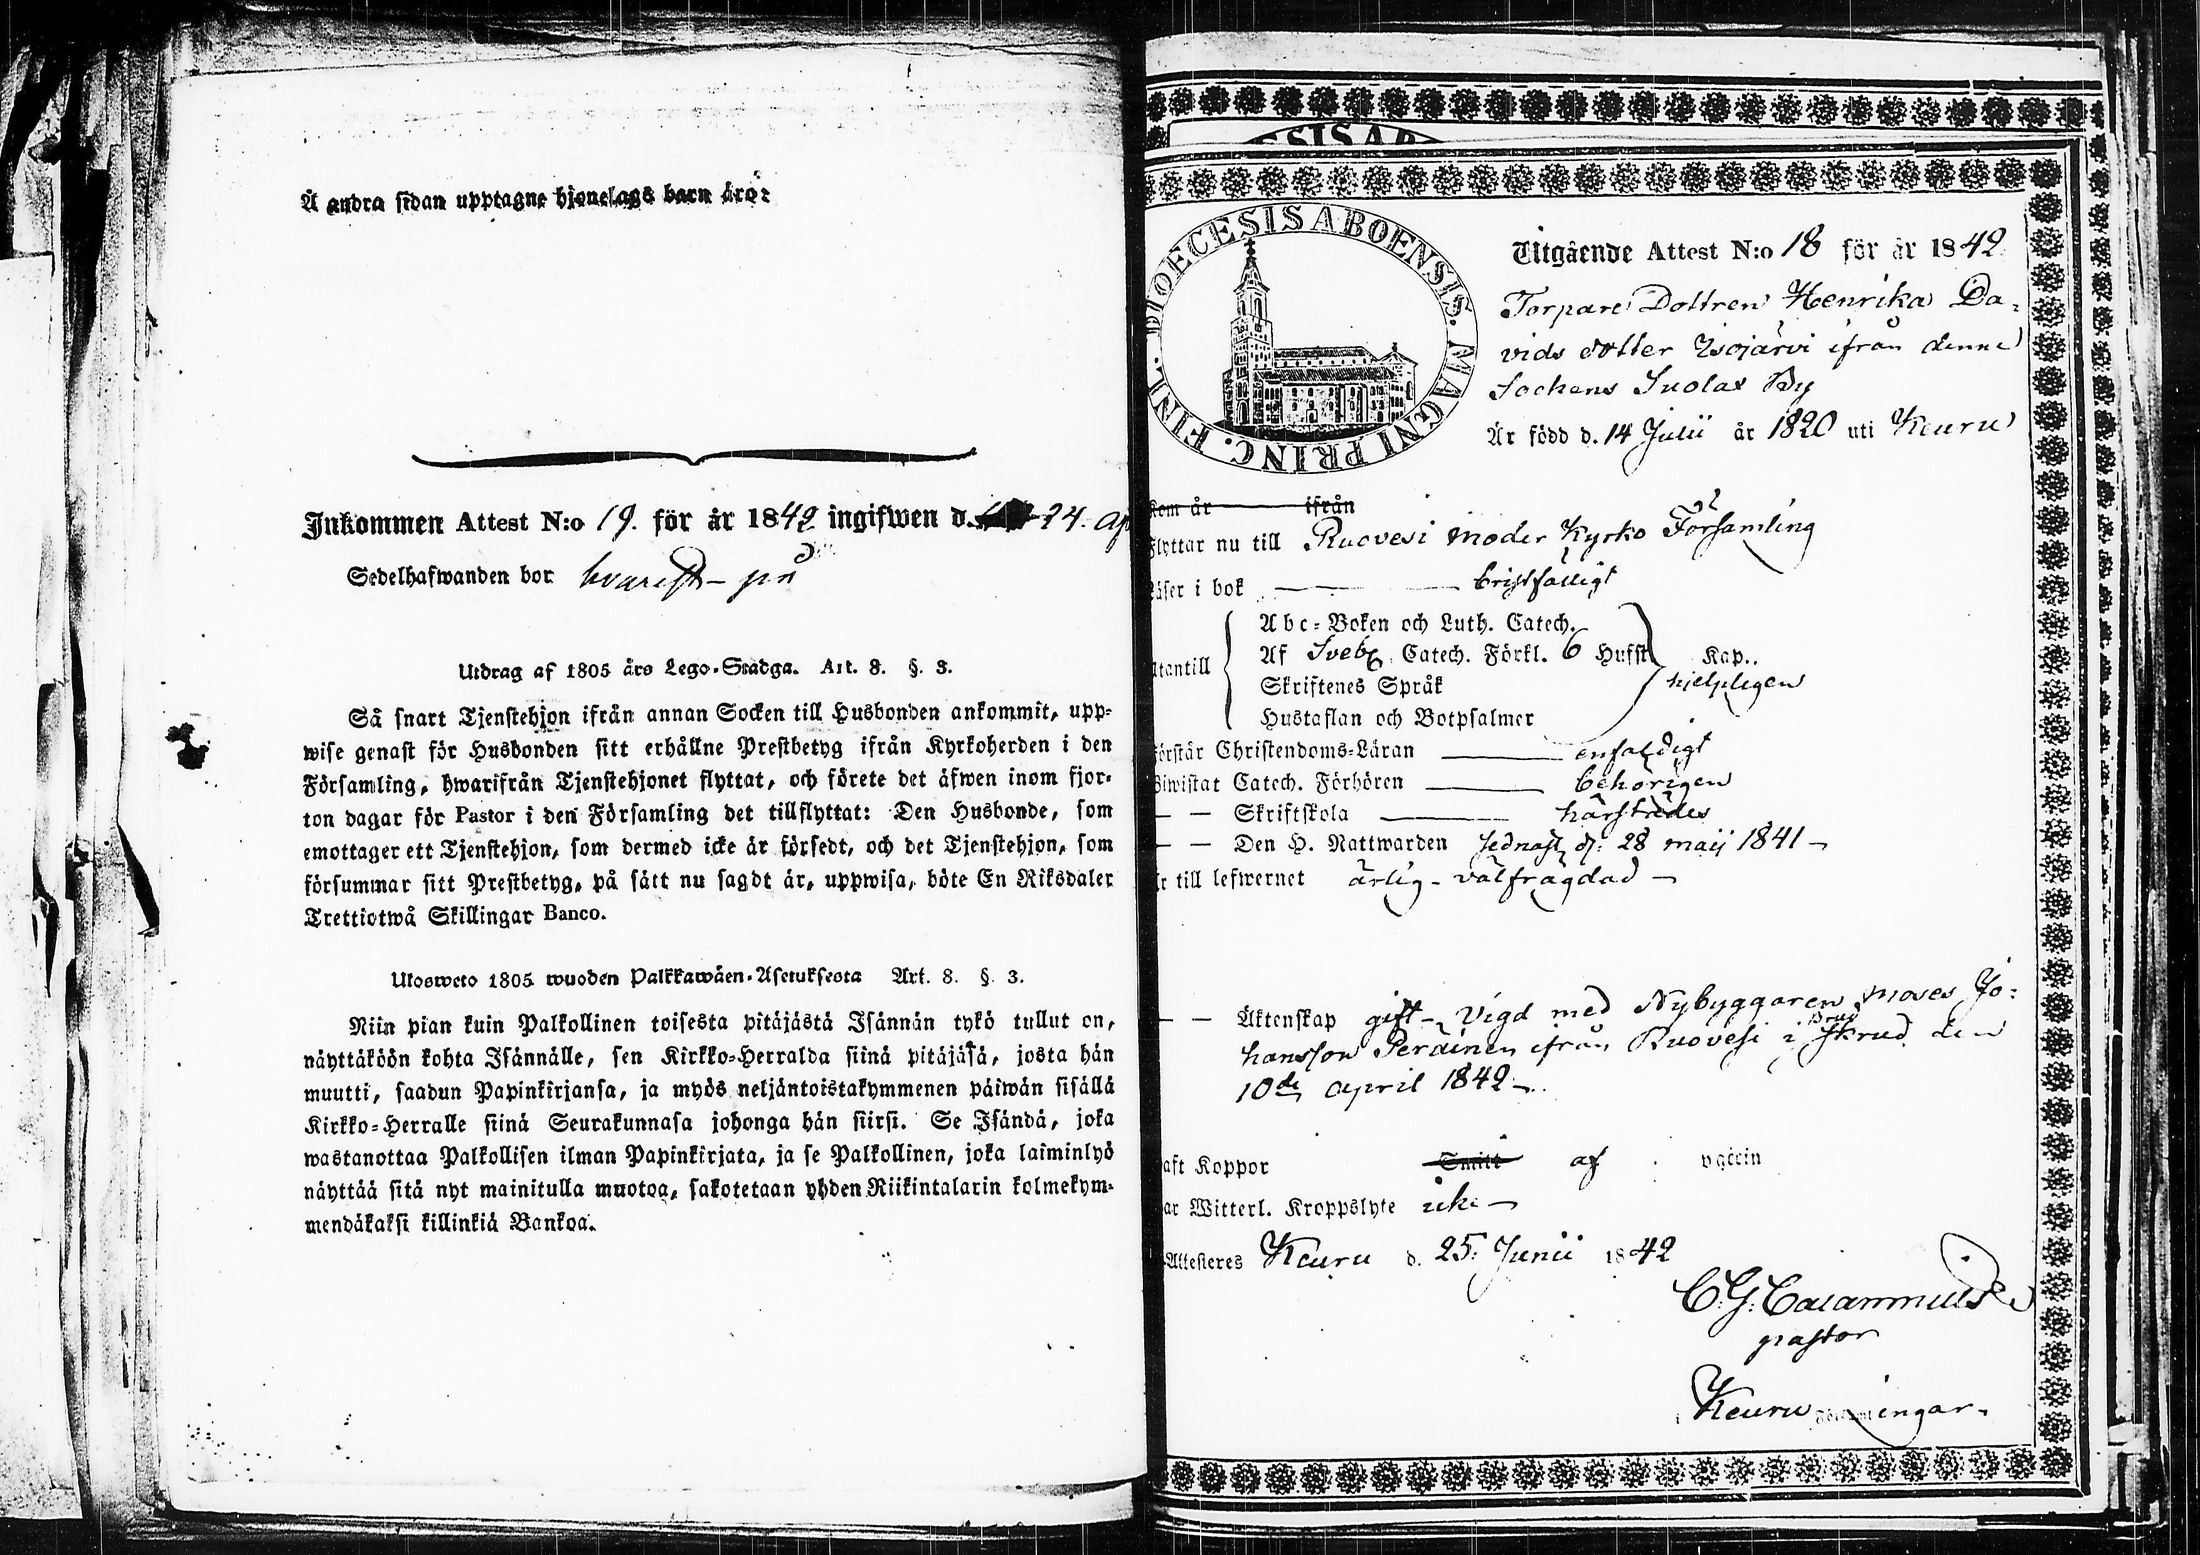 Å andra sidan upptagne hjonelags barn äro:
Inkommen Attest N:o 19. för år 1842 ingifwen d. 24. ap
Sedelhafwanden bor
Utdrag af 1805 års Lego-Stadga. Art. 8. §. 3.
Så snart Tjenstehjon ifrån annan Socken till Husbonden ankommit, upp-
wise genast för Husbonden sitt erhållne Prestbetyg ifrån Kyrkoherden i den
Församling, hwarifrån Tjenstehjonet flyttat, och förete det äfwen inom fjor-
ton dagar för Pastor i den Församling det tillflyttat: Den Husbonde, som
emottager ett Tjenstehjon, som dermed icke är försedt, och det Tjenstehjon, som
försummar sitt Prestbetyg, på sätt nu sagdt är, uppwisa, böte En Riksdaler
Trettiotwå Skillingar Banco.
Ulosweto 1805 wuoden Palkkawäen-Asetuksesta Art. 8. §. 3.
Niin pian kuin Palkollinen toisesta pitäjästä Isännän tykö tullut on,
näyttäköön kohta Isännälle, sen Kirkko-Herralda siinä pitäjäsä, josta hän
muutti, saadun Papinkirjansa, ja myös neljäntoistakymmenen päiwän sisällä
Kirkko-Herralle siinä Seurakunnasa johonga hän siirsi. Se Isändä, joka
wastanottaa Palkollisen ilman Papinkirjata, ja se Palkollinen, joka laiminlyö
näyttää sitä nyt mainitulla muotoa, sakotetaan yhden Riikintalarin kolmekym-
mendäkaksi killinkiä Bankoa.
ESIS AB
DIOECESIS ABOENSIS. MAGNI PRINC. FINL.
Utgående Attest N:o 18 för år 1842
Torpare Dottren Henrika Da-
vids dotter Isojärvi ifrån denne
Sockens Suolax By
Är född d. 14 Julii år 1820 uti Keuru
Kom år ifrån
Flyttar nu till Ruovesi moder Kyrko Församling
Läser i bok bristfälligt
Utantill
Abc-Boken och Luth. Catech.
Af Sveb. Catech. Förkl. 6 Hufst. Kap..
Skriftenes Språk hjelpligen
Hustaflan och Botpsalmer
Förstår Christendoms-Läran enfaldigt
Biwistat Catech. Förhören behörigen
— — Skriftskola härstädes
— — Den H. Nattwarden sednast d. 28 maij 1841 —
Är till lefwernet ärlig - välfrägdad —
— — Äktenskap gift - Vigd med Nybyggaren Moses Jo-
hansson Peräinen ifrån Ruovesi i Brud Skrud den
10de april 1842 —
aft Koppor Smitt af ygerin
ar Witterl. Kroppslyte icke —
Attesteres Keuru d. 25. Junii 1842
pastor
i Keuru Församlingar.